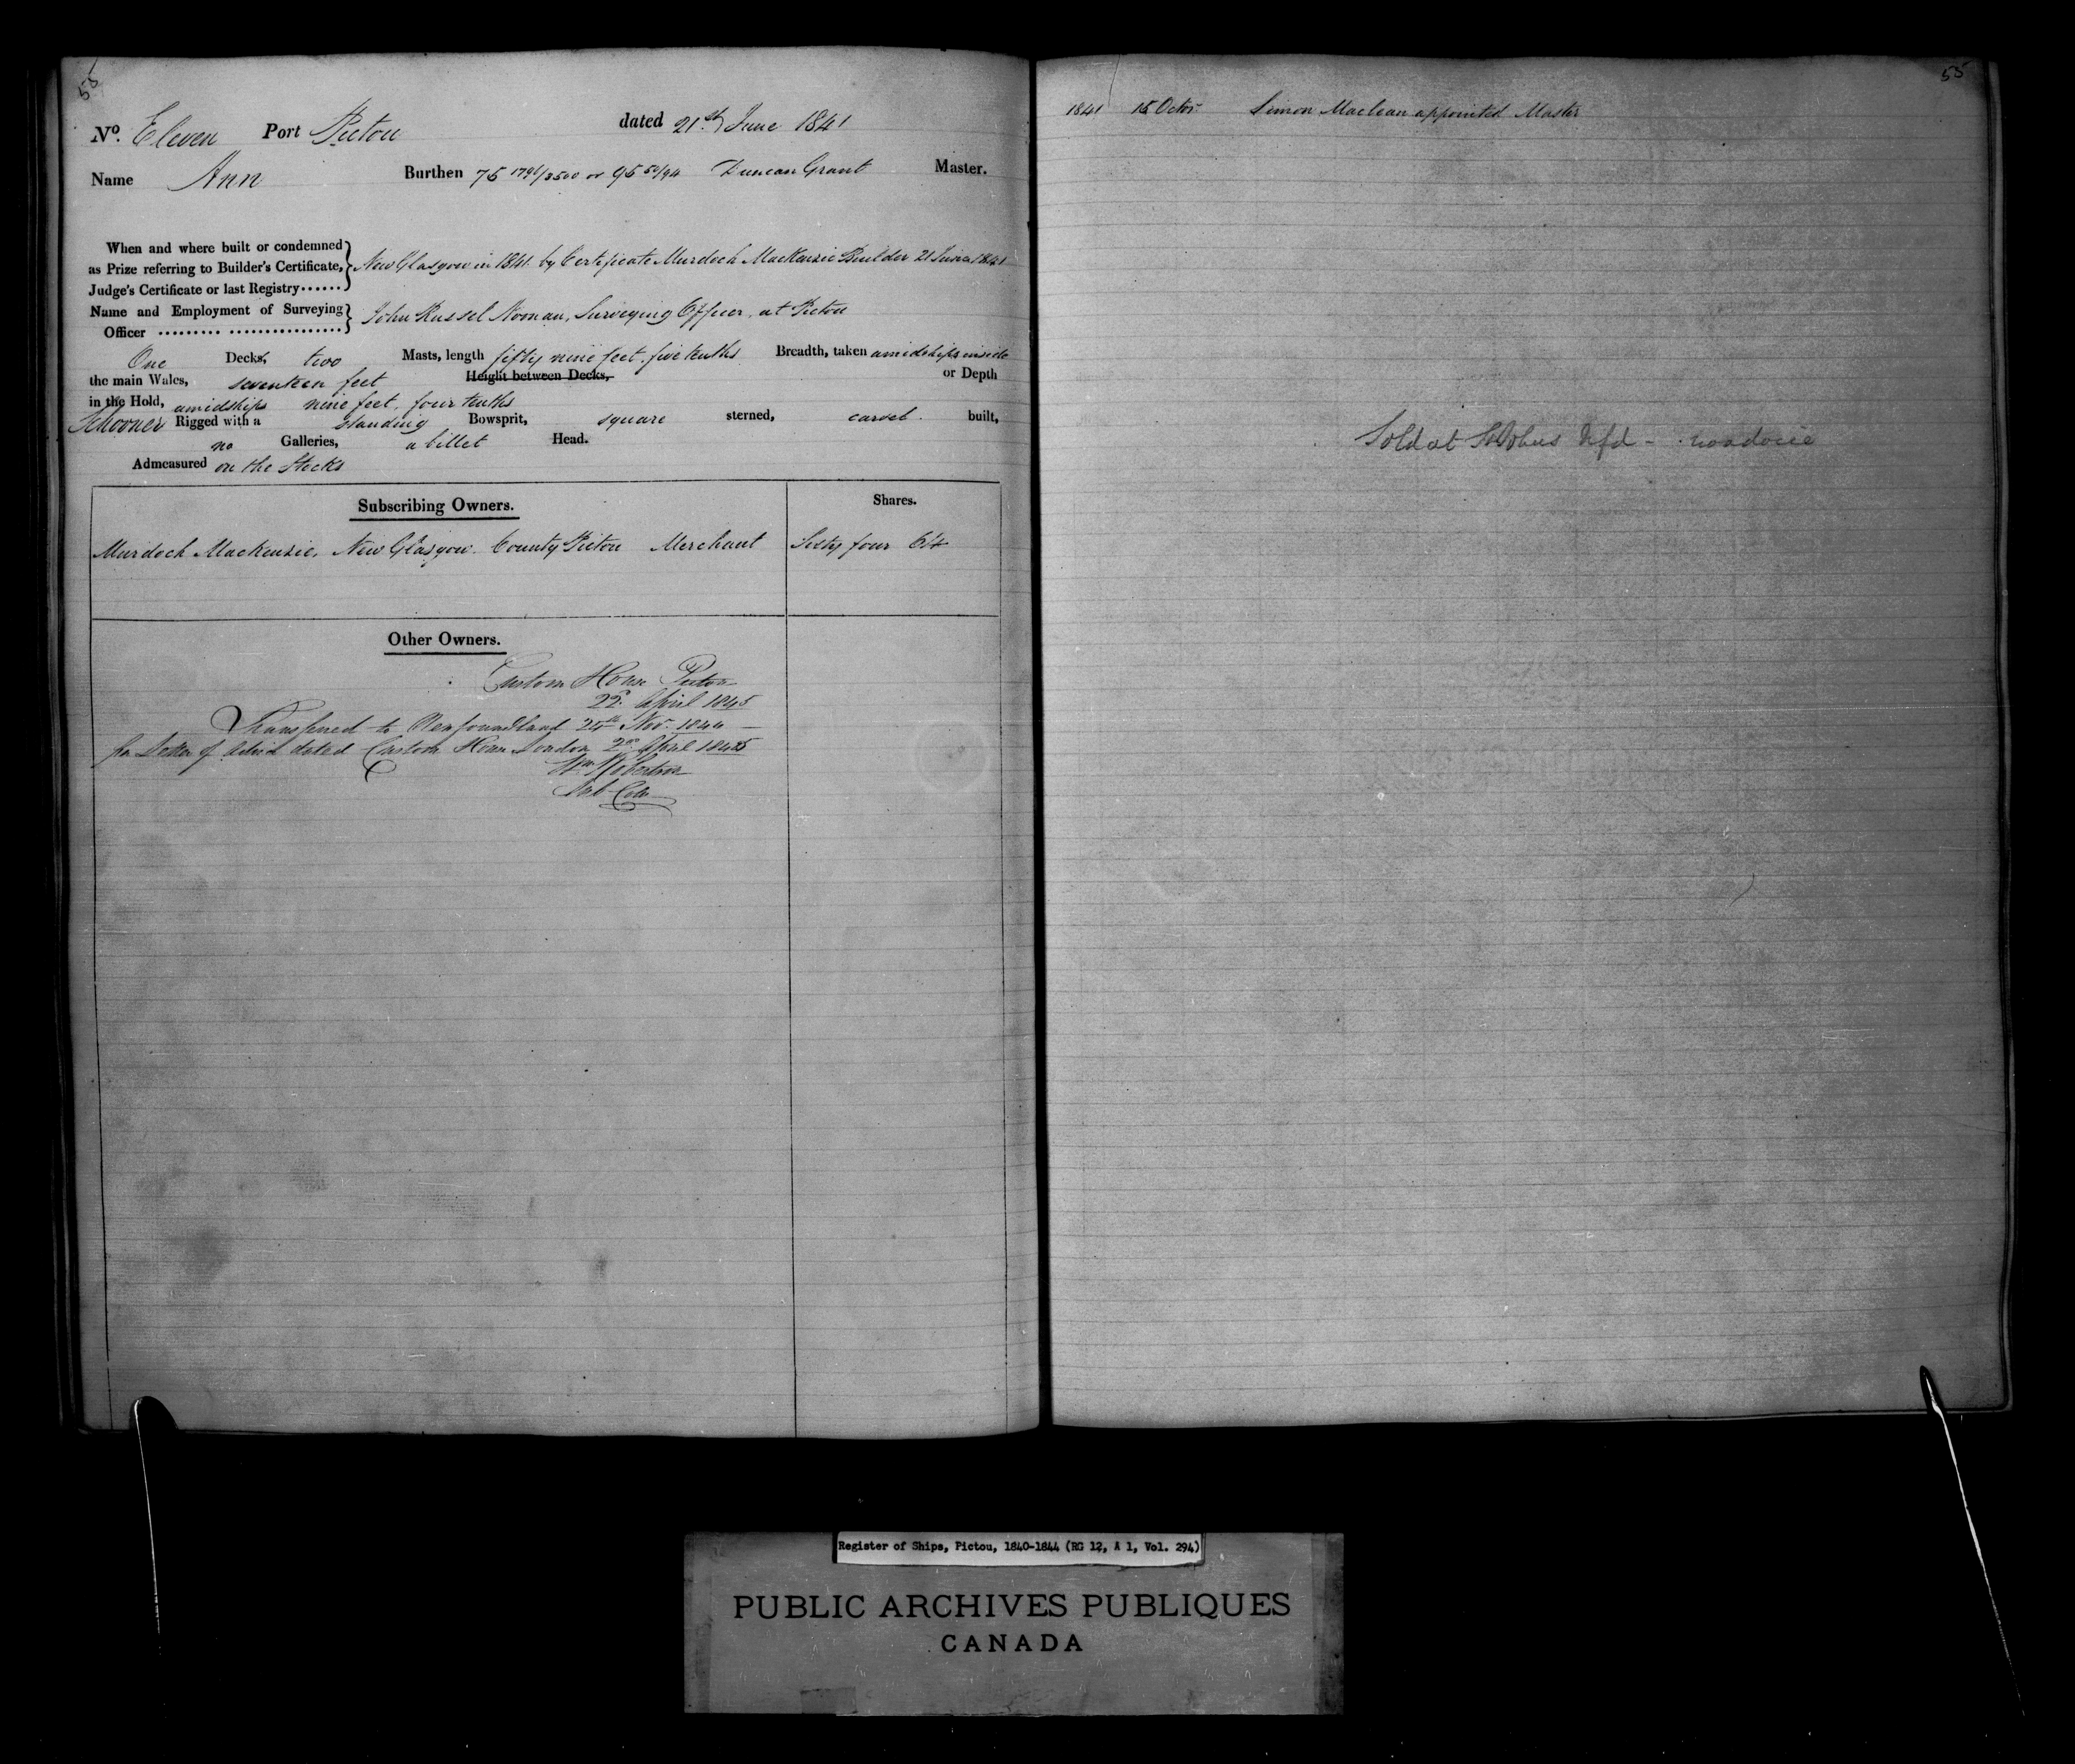 55
No. Eleven Port Pictou dated 21st June 1841
Name Ann Burthen 75 1796/3500 or 95 50/94 Duncan Grant Master.
When and where built or condemned
as Prize referring to Builder's Certificate,
Judge's Certificate or last Registry......
New Glasgow in 1841 by Certificate Murdoch MacKenzie Builder 21 June 1841
Name and Employment of Surveying
Officer
John Russel Noonan, Surveying Officer, at Pictou
One Decks, two Masts, length fifty nine feet, five tenths Breadth, taken amidships inside
the main Wales, seventeen feet Height between Decks, or Depth
in the Hold, amidships nine feet, four tenths
Schooner Rigged with a standing Bowsprit, square sterned, carvel built,
no Galleries, a billet Head.
Admeasured on the Stocks
Subscribing Owners. Shares.
Murdoch MacKenzie, New Glasgow. County Pictou Merchant Sixty four 64
Other Owners.
Custom House Pictou
22d April 1845
Transferred to Newfoundland 25th Nov. 1844
per Letter of Advice dated Custom House London 2d April 1845
Wm Robertson
Sub Collr
55
1841 15 Octr Simon Maclean appointed Master
Sold at St Johns Nfd -
Register of Ships, Pictou, 1840-1844 (RG 12, A 1, Vol. 294)
PUBLIC ARCHIVES PUBLIQUES
CANADA